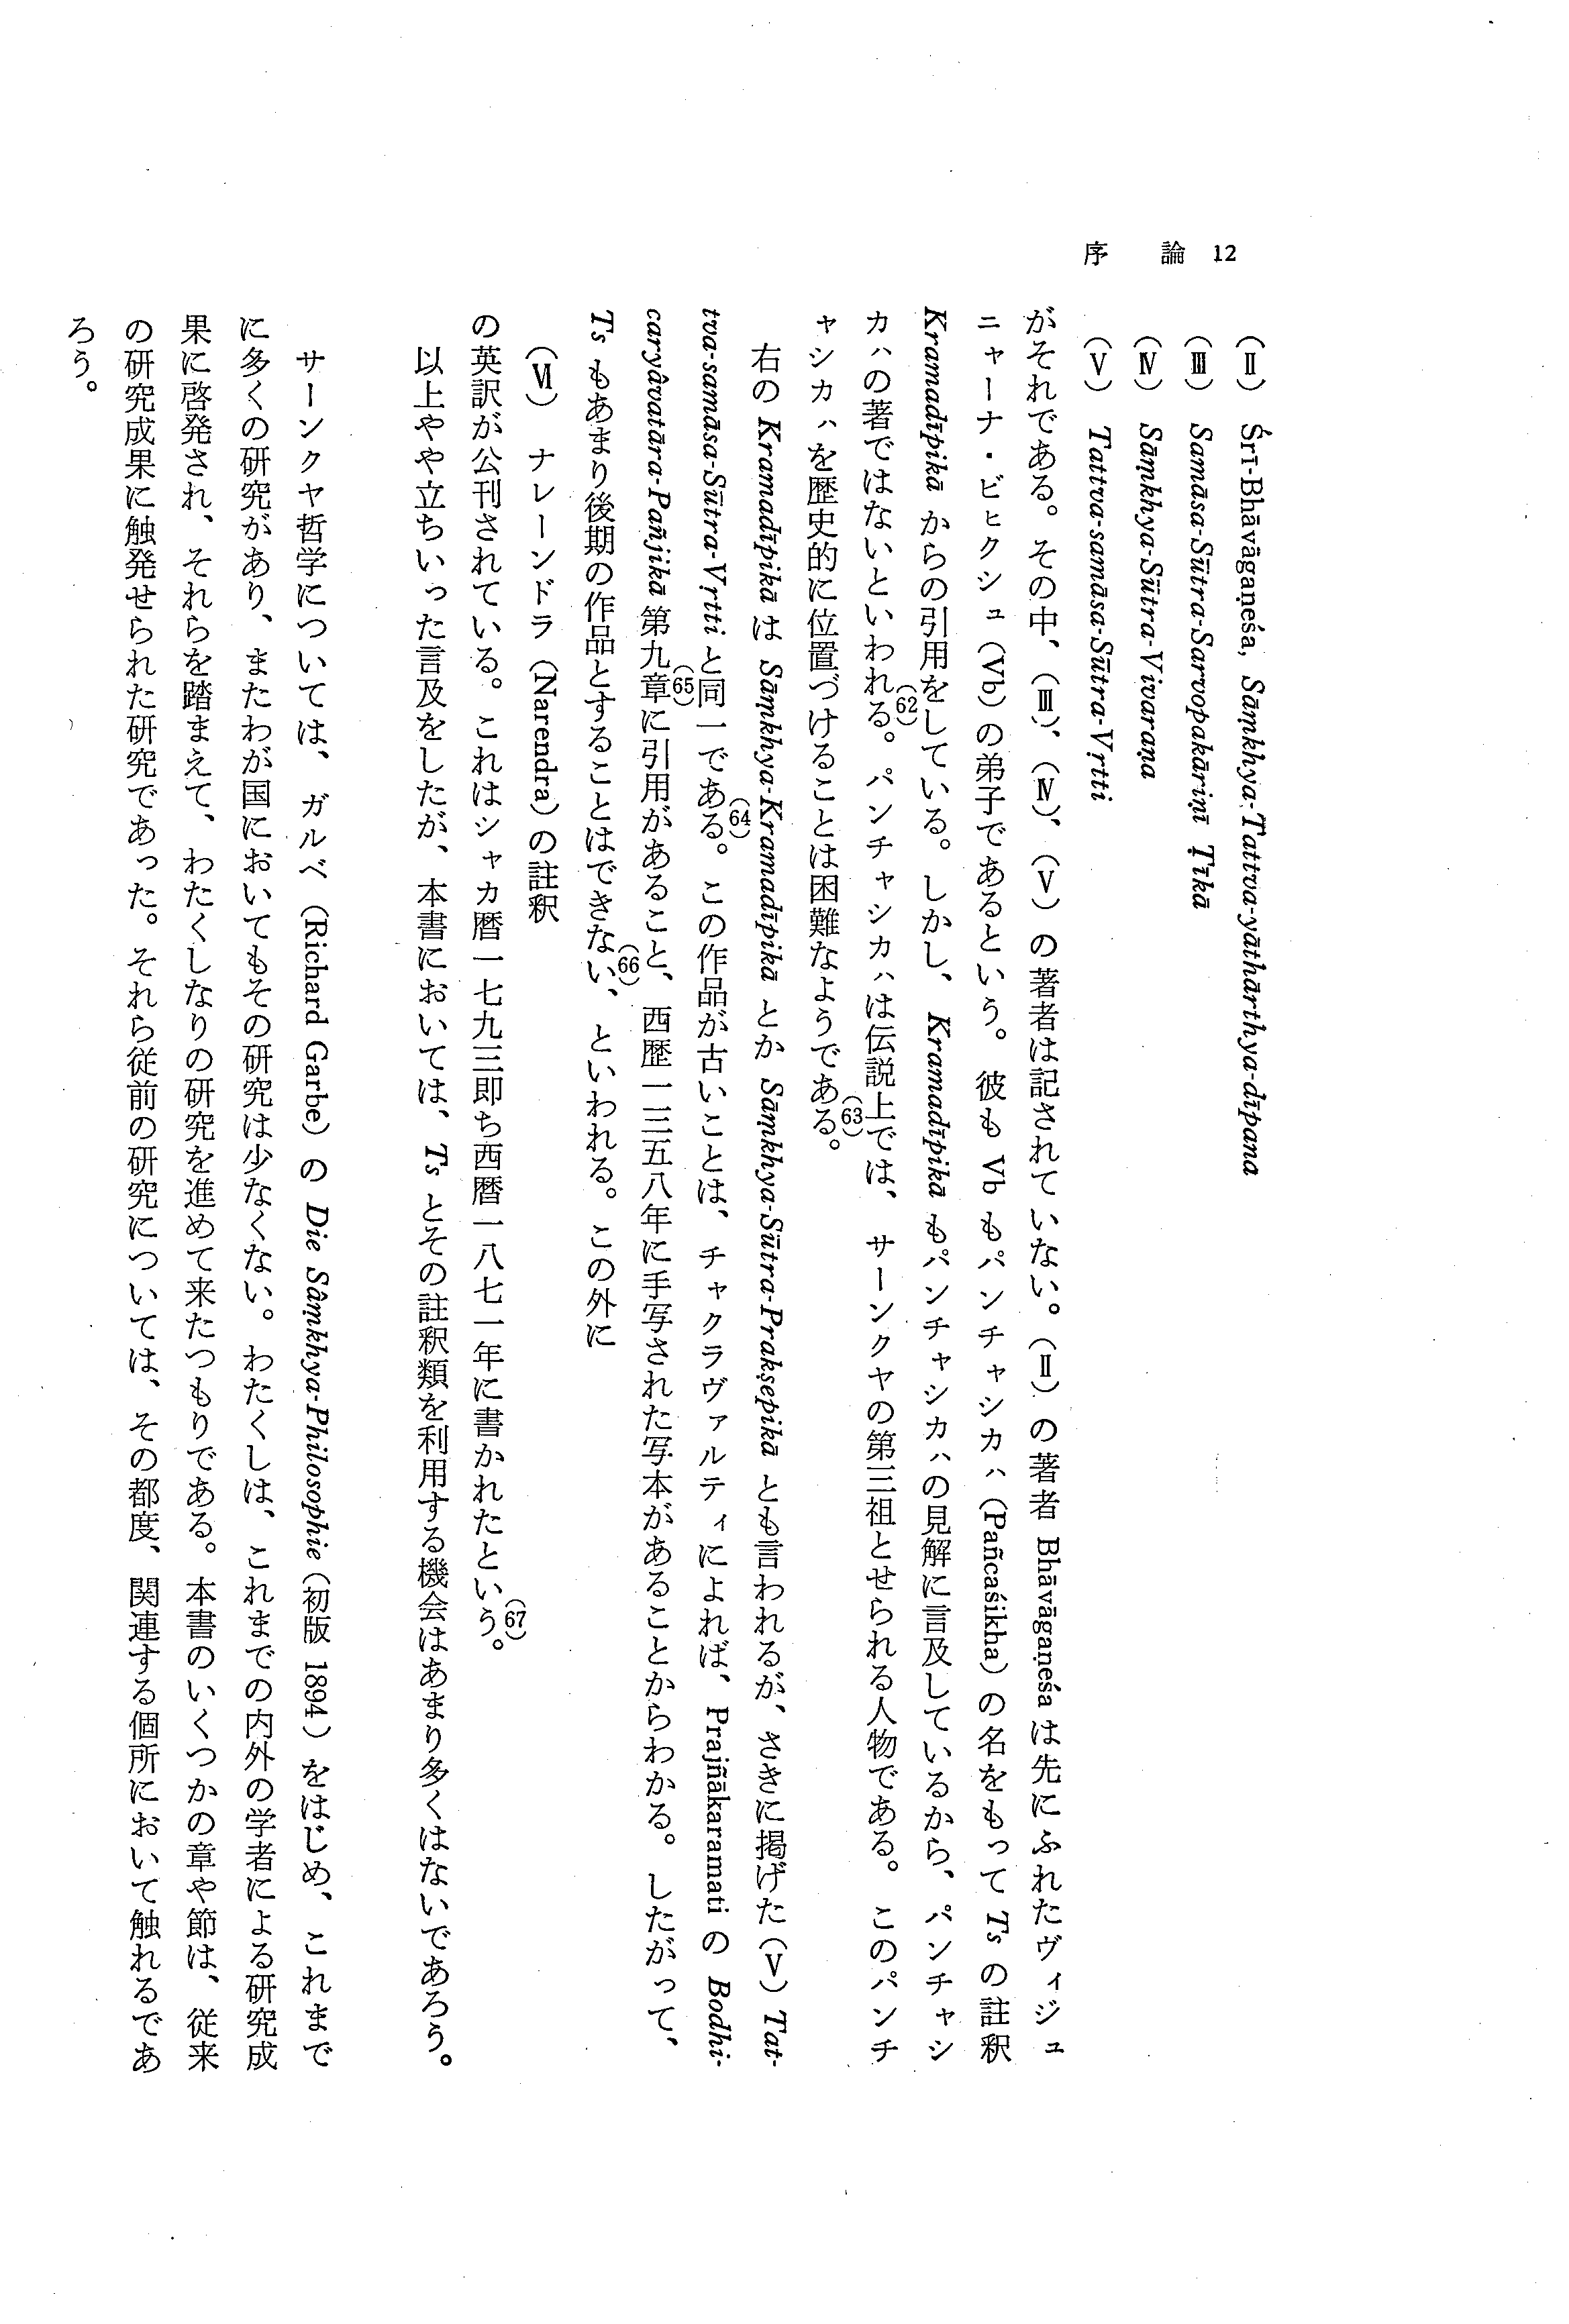 序論 12
(Ⅱ) Śrī-Bhāvāgaṇeśa, Sāṃkhya-Tattva-yāthārthya-dīpana
(Ⅲ) Samāsa-Sūtra-Sarvopakāriṇī Ṭīkā
(Ⅳ) Sāṃkhya-Sūtra-Vivaraṇa
(Ⅴ) Tattva-samāsa-Sūtra-Vṛtti
がそれである。その中、(Ⅲ)、(Ⅳ)、(Ⅴ)の著者は記されていない。(Ⅱ)の著者 Bhāvāgaṇeśa は先にふれたヴィジュ
ニャーナ・ビヒクシュ(Vb)の弟子であるという。彼も Vb もパンチャシカハ(Pañcaśikha)の名をもって Ts の註釈
Kramadīpikā からの引用をしている。しかし、Kramadīpikā もパンチャシカハの見解に言及しているから、パンチャシ
カハの著ではないといわれる(62)。パンチャシカハは伝説上では、サーンクヤの第三祖とせられる人物である。このパンチ
ャシカハを歴史的に位置づけることは困難なようである(63)。
右の Kramadīpikā は Sāṃkhya-Kramadīpikā とか Sāṃkhya-Sūtra-Prakṣepikā とも言われるが、さきに掲げた(Ⅴ) Tat-
tva-samāsa-Sūtra-Vṛtti と同一である(64)。この作品が古いことは、チャクラヴァルティによれば、Prajñākaramati の Bodhi-
caryâvatāra-Pañjikā 第九章(65)に引用があること、西歴一三五八年に手写された写本があることからわかる。したがって、
Ts もあまり後期の作品とすることはできない(66)、といわれる。この外に
(Ⅵ) ナレーンドラ(Narendra)の註釈
の英訳が公刊されている。これはシャカ暦一七九三即ち西暦一八七一年に書かれたという(67)。
以上やや立ちいった言及をしたが、本書においては、Ts とその註釈類を利用する機会はあまり多くはないであろう。
サーンクヤ哲学については、ガルベ(Richard Garbe)の Die Sâṃkhya-Philosophie(初版 1894)をはじめ、これまで
に多くの研究があり、またわが国においてもその研究は少なくない。わたくしは、これまでの内外の学者による研究成
果に啓発され、それらを踏まえて、わたくしなりの研究を進めて来たつもりである。本書のいくつかの章や節は、従来
の研究成果に触発せられた研究であった。それら従前の研究については、その都度、関連する個所において触れるであ
ろう。